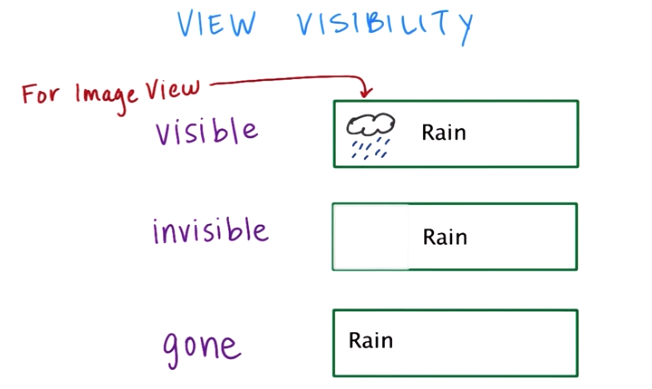 VIEW VISIBILITY
For Image View
visible
Rain
invisible
Rain
gone
Rain